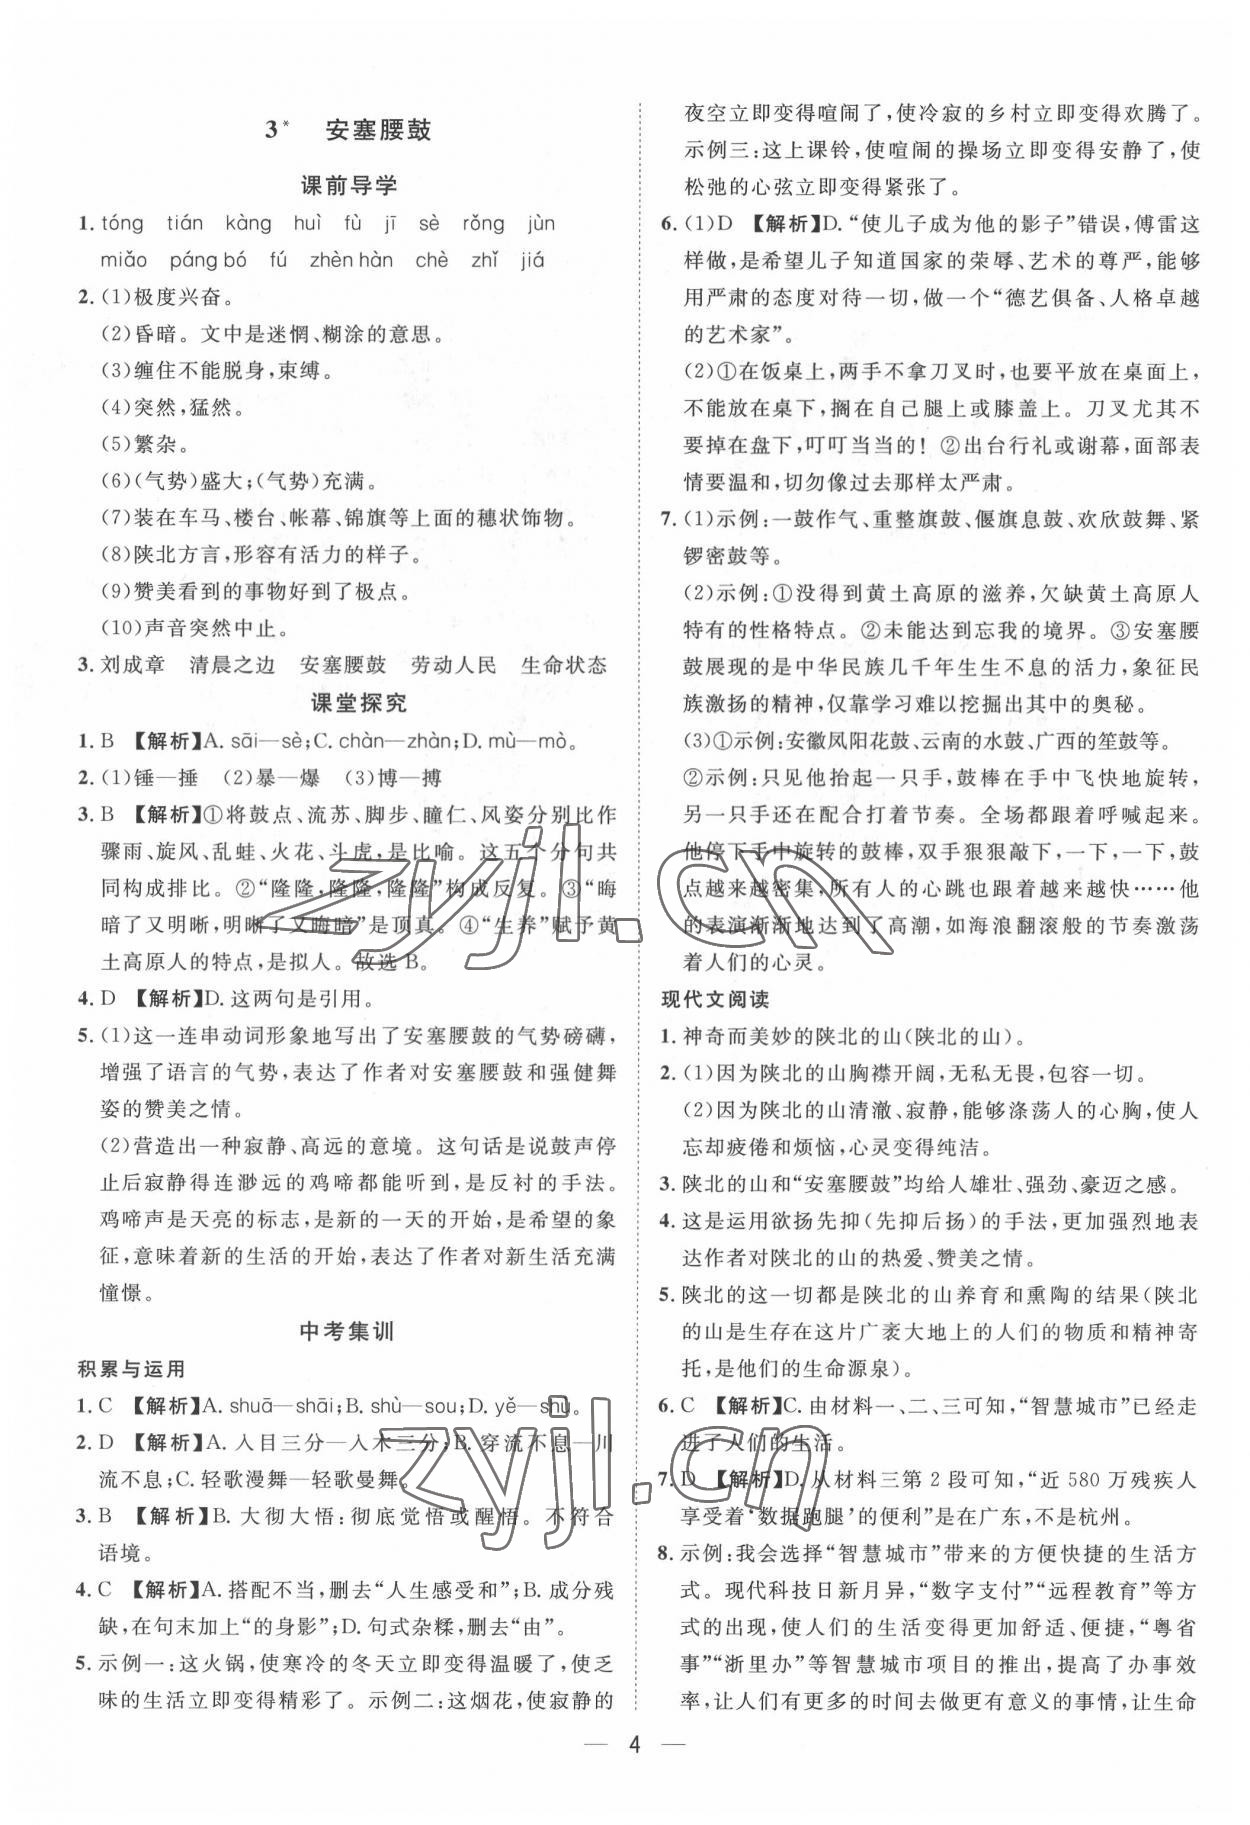 3* 安塞腰鼓
课前导学
1. tóng tián kàng huì fù jī sè rǒng jùn
miǎo páng bó fú zhèn hàn chè zhǐ jiá
2. (1)极度兴奋。
(2)昏暗。文中是迷惘、糊涂的意思。
(3)缠住不能脱身,束缚。
(4)突然,猛然。
(5)繁杂。
(6)(气势)盛大;(气势)充满。
(7)装在车马、楼台、帐幕、锦旗等上面的穗状饰物。
(8)陕北方言,形容有活力的样子。
(9)赞美看到的事物好到了极点。
(10)声音突然中止。
3. 刘成章 清晨之边 安塞腰鼓 劳动人民 生命状态
课堂探究
1. B 【解析】A. sāi—sè;C. chàn—zhàn;D. mù—mò。
2. (1)锤—捶 (2)暴—爆 (3)博—搏
3. B 【解析】①将鼓点、流苏、脚步、瞳仁、风姿分别比作
骤雨、旋风、乱蛙、火花、斗虎,是比喻。这五个分句共
同构成排比。②“隆隆,隆隆,隆隆”构成反复。③“晦
暗了又明晰,明晰了又晦暗”是顶真。④“生养”赋予黄
土高原人的特点,是拟人。故选B。
4. D 【解析】D. 这两句是引用。
5. (1)这一连串动词形象地写出了安塞腰鼓的气势磅礴,
增强了语言的气势,表达了作者对安塞腰鼓和强健舞
姿的赞美之情。
(2)营造出一种寂静、高远的意境。这句话是说鼓声停
止后寂静得连渺远的鸡啼都能听到,是反衬的手法。
鸡啼声是天亮的标志,是新的一天的开始,是希望的象
征,意味着新的生活的开始,表达了作者对新生活充满
憧憬。
中考集训
积累与运用
1. C 【解析】A. shuā—shāi;B. shù—sou;D. yě—shù。
2. D 【解析】A. 入目三分—入木三分;B. 穿流不息—川
流不息;C. 轻歌漫舞—轻歌曼舞。
3. B 【解析】B. 大彻大悟:彻底觉悟或醒悟。不符合
语境。
4. C 【解析】A. 搭配不当,删去“人生感受和”;B. 成分残
缺,在句末加上“的身影”;D. 句式杂糅,删去“由”。
5. 示例一:这火锅,使寒冷的冬天立即变得温暖了,使乏
味的生活立即变得精彩了。示例二:这烟花,使寂静的
夜空立即变得喧闹了,使冷寂的乡村立即变得欢腾了。
示例三:这上课铃,使喧闹的操场立即变得安静了,使
松弛的心弦立即变得紧张了。
6. (1)D 【解析】D.“使儿子成为他的影子”错误,傅雷这
样做,是希望儿子知道国家的荣辱、艺术的尊严,能够
用严肃的态度对待一切,做一个“德艺俱备、人格卓越
的艺术家”。
(2)①在饭桌上,两手不拿刀叉时,也要平放在桌面上,
不能放在桌下,搁在自己腿上或膝盖上。刀叉尤其不
要掉在盘下,叮叮当当的!②出台行礼或谢幕,面部表
情要温和,切勿像过去那样太严肃。
7. (1)示例:一鼓作气、重整旗鼓、偃旗息鼓、欢欣鼓舞、紧
锣密鼓等。
(2)示例:①没得到黄土高原的滋养,欠缺黄土高原人
特有的性格特点。②未能达到忘我的境界。③安塞腰
鼓展现的是中华民族几千年生生不息的活力,象征民
族激扬的精神,仅靠学习难以挖掘出其中的奥秘。
(3)①示例:安徽凤阳花鼓、云南的水鼓、广西的笙鼓等。
②示例:只见他抬起一只手,鼓棒在手中飞快地旋转,
另一只手还在配合打着节奏。全场都跟着呼喊起来。
他停下手中旋转的鼓棒,双手狠狠敲下,一下,一下,鼓
点越来越密集,所有人的心跳也跟着越来越快……他
的表演渐渐地达到了高潮,如海浪翻滚般的节奏激荡
着人们的心灵。
现代文阅读
1. 神奇而美妙的陕北的山(陕北的山)。
2. (1)因为陕北的山胸襟开阔,无私无畏,包容一切。
(2)因为陕北的山清澈、寂静,能够涤荡人的心胸,使人
忘却疲倦和烦恼,心灵变得纯洁。
3. 陕北的山和“安塞腰鼓”均给人雄壮、强劲、豪迈之感。
4. 这是运用欲扬先抑(先抑后扬)的手法,更加强烈地表
达作者对陕北的山的热爱、赞美之情。
5. 陕北的这一切都是陕北的山养育和熏陶的结果(陕北
的山是生存在这片广袤大地上的人们的物质和精神寄
托,是他们的生命源泉)。
6. C 【解析】C. 由材料一、二、三可知,“智慧城市”已经走
进了人们的生活。
7. D 【解析】D. 从材料三第2段可知,“近580万残疾人
享受着‘数据跑腿’的便利”是在广东,不是杭州。
8. 示例:我会选择“智慧城市”带来的方便快捷的生活方
式。现代科技日新月异,“数字支付”“远程教育”等方
式的出现,使人们的生活变得更加舒适、便捷,“粤省
事”“浙里办”等智慧城市项目的推出,提高了办事效
率,让人们有更多的时间去做更有意义的事情,让生命
— 4 —
zyjl.cn
zyjl.cn